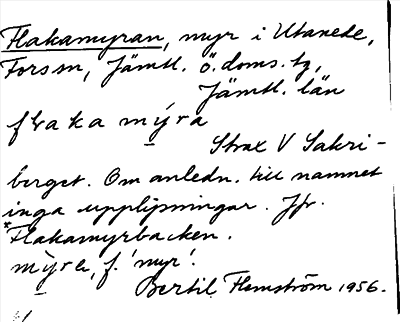 Flakamyran, myr i Utanede,
Forssn, Jämtl. ö. doms. tg,
Jämtl. län
flraka mýra
Strax V Sakri-
berget. Om anledn. till namnet
inga upplysningar. Jfr.
*Flakamyrbacken.
mỳra, f. 'myr'.
Bertil Flemström 1956.